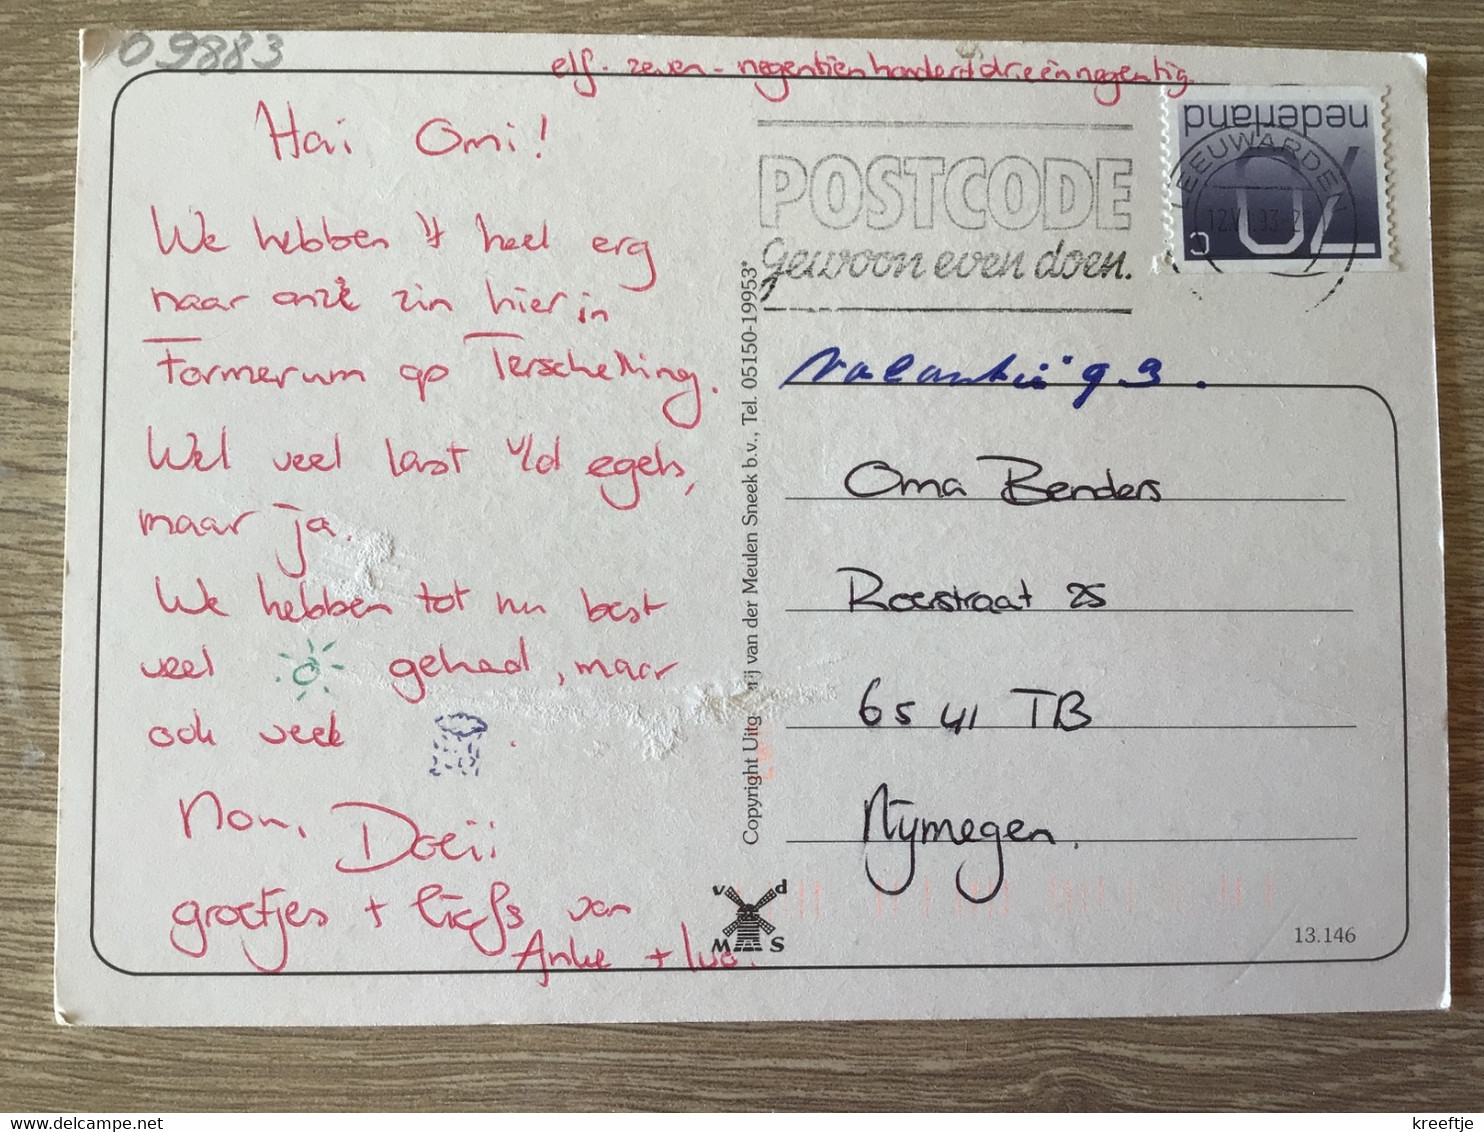 09883
elf - zeven - negentienhonderd drieënnegentig
Hai Omi!
We hebben 't heel erg
naar onze zin hier in
Formerum op Terschelling.
Wel veel last v/d egels,
maar ja.
We hebben tot nu best
veel gehad, maar
ook veel .
Nou, Doeii
groetjes + liefs van
Anke + Ivo.
POSTCODE
gewoon even doen.
nederland
70
c
LEEUWARDEN
Vakantie 93.
Oma Benders
Roerstraat 25
6541 TB
Nijmegen.
Copyright Uitg rij van der Meulen Sneek b.v., Tel. 05150-19953*
v d
M S
13.146
kreeftje